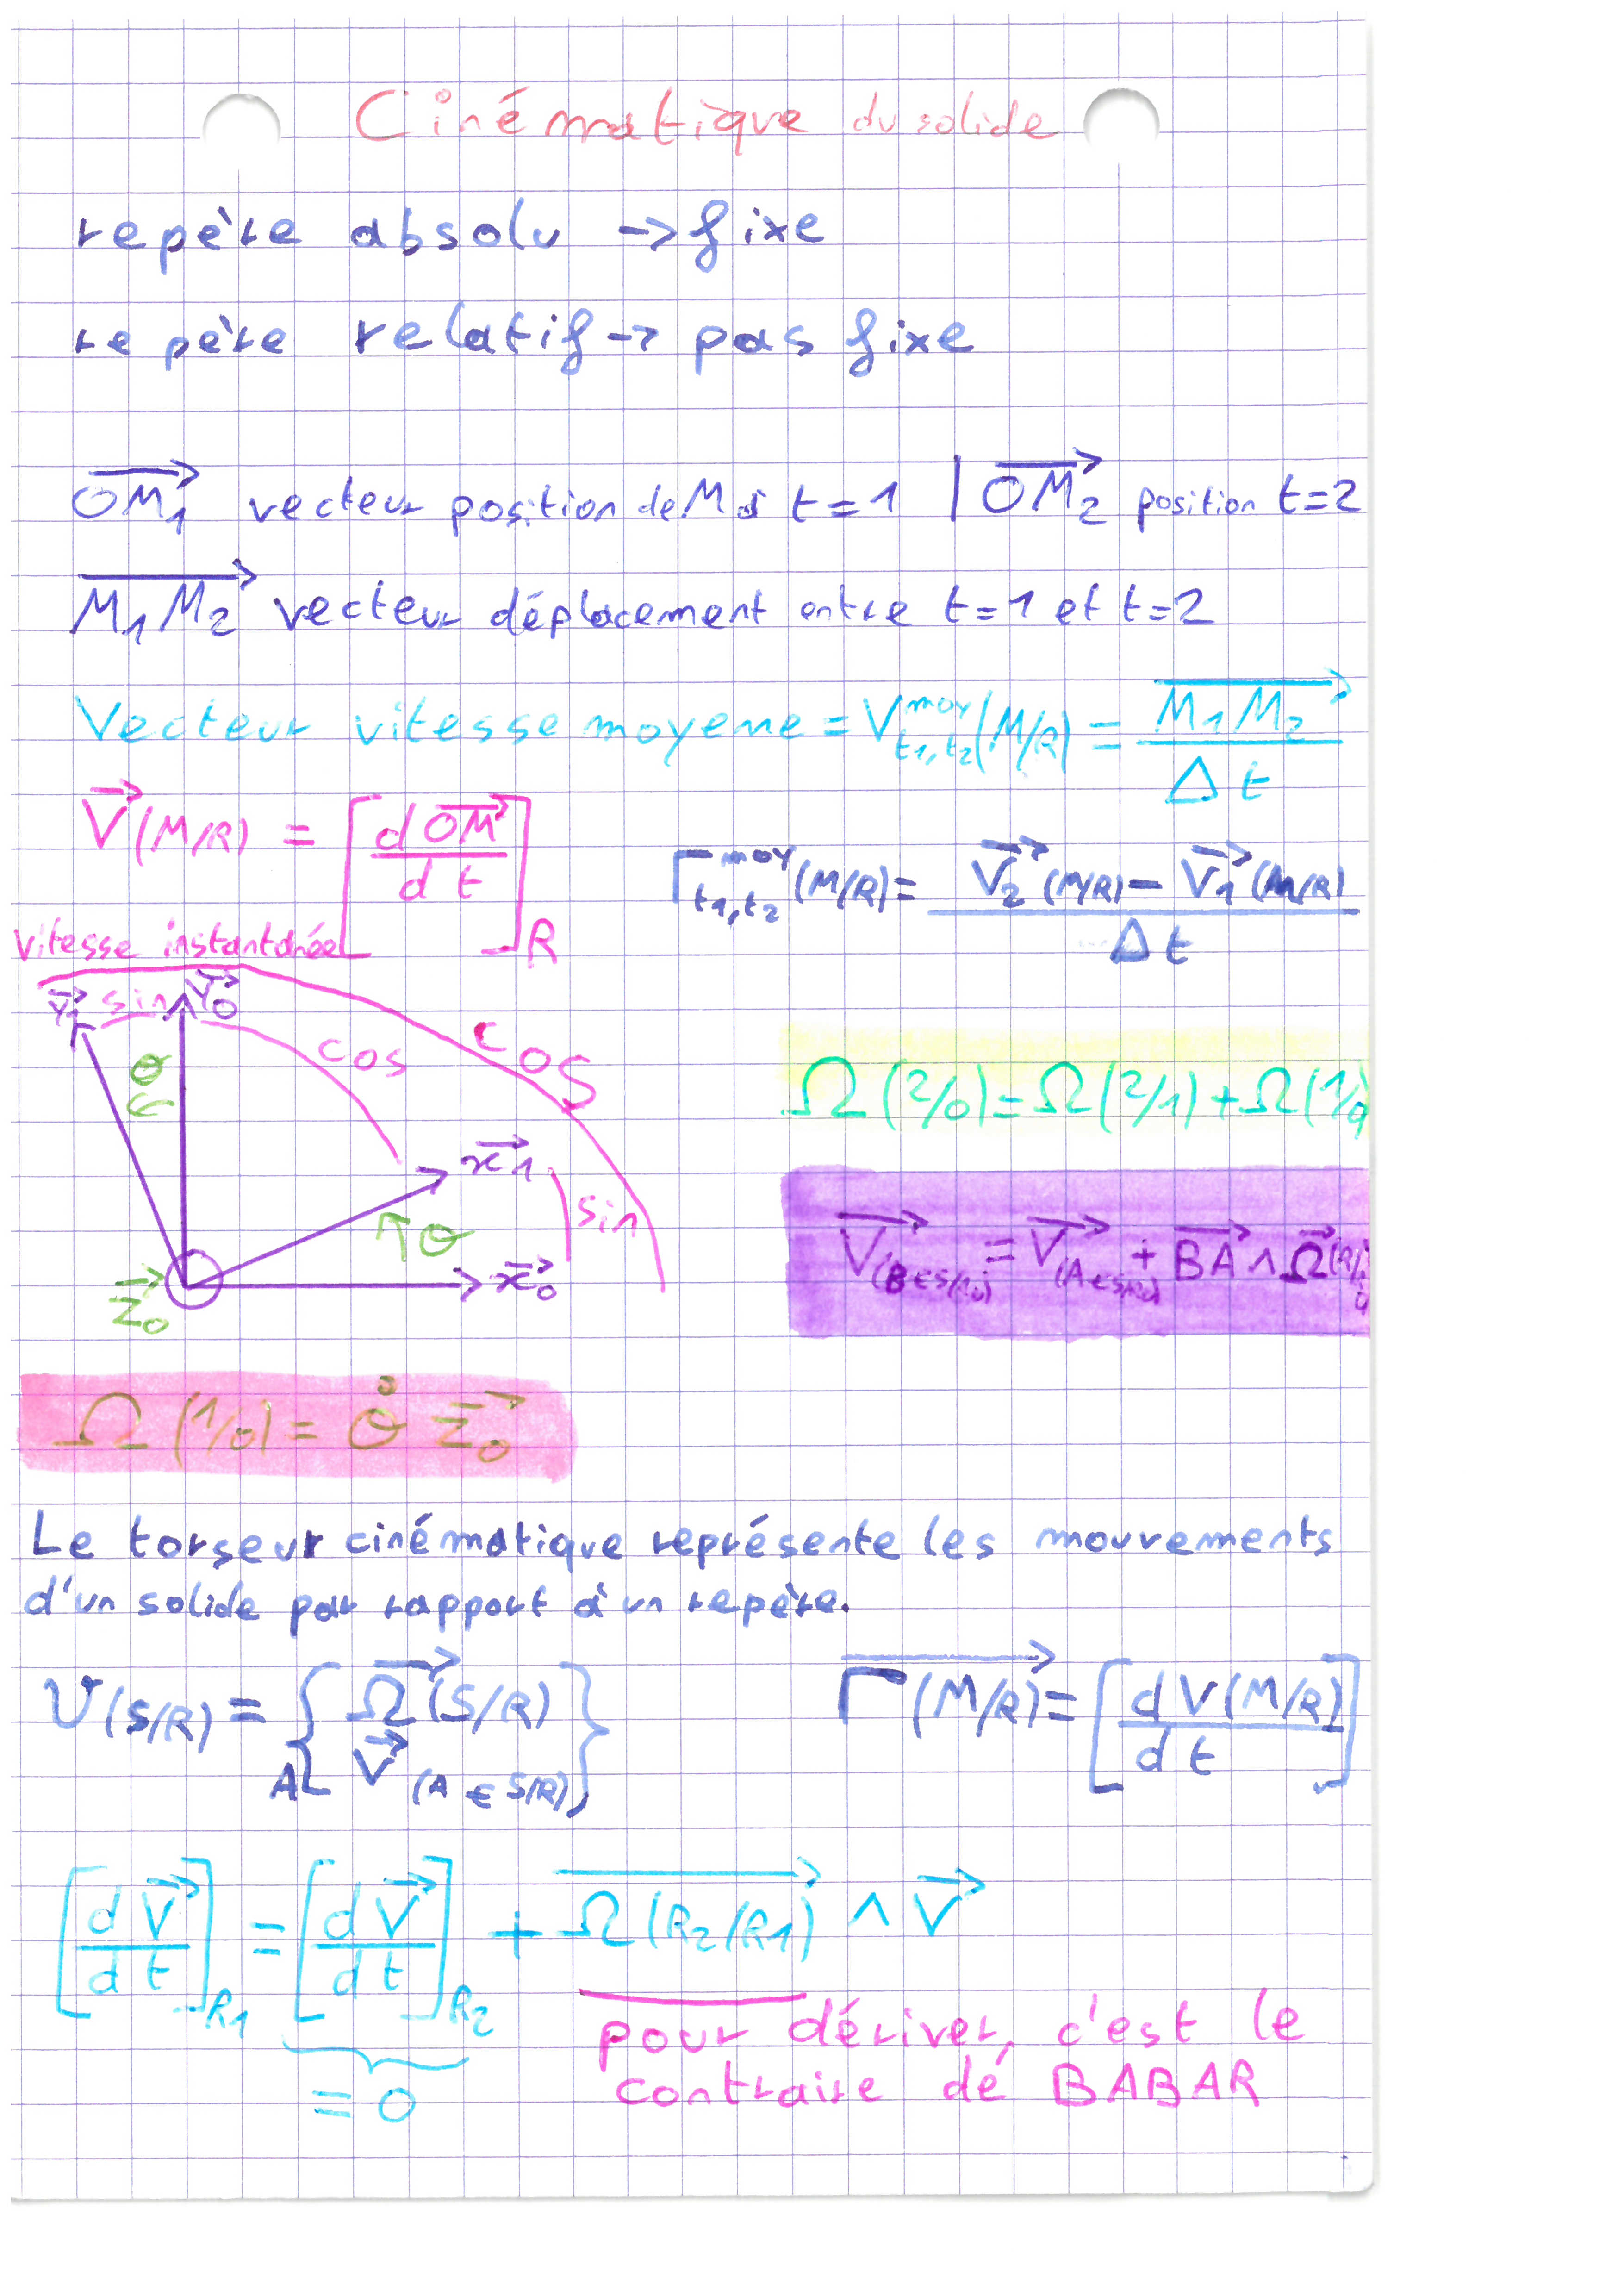 Cinématique du solide
repère absolu → fixe
repère relatif → pas fixe
$\overrightarrow{OM_1}$ vecteur position de M à t=1 | $\overrightarrow{OM_2}$ position t=2
$\overrightarrow{M_1M_2}$ vecteur déplacement entre t=1 et t=2
Vecteur vitesse moyene = $V^{moy}_{t_1,t_2}(M/R) = \frac{\overrightarrow{M_1M_2}}{\Delta t}$
$\vec{V}(M/R) = \left[\frac{d\overrightarrow{OM}}{dt}\right]_R$
vitesse instantanée
$\Gamma^{moy}_{t_1,t_2}(M/R) = \frac{\vec{V_2}(M/R) - \vec{V_1}(M/R)}{\Delta t}$
$\vec{y_1}$ sin $\vec{y_0}$
cos cos
θ
$\vec{x_1}$
sin
θ
$\vec{x_0}$
$\vec{z_0}$
Ω(2/0) = Ω(2/1) + Ω(1/0)
$\vec{V}_{(B∈S/R_0)} = \vec{V}_{(A∈S/R_0)} + \overrightarrow{BA} ∧ \vec{Ω}(R/_0$
$Ω(1/0) = \dot{θ}\,\vec{z_0}$
Le torseur cinématique représente les mouvements
d'un solide par rapport à un repère.
$V(S/R) = {}_A\left\{\begin{matrix}\vec{Ω}(S/R)\\ \vec{V}(A∈S/R)\end{matrix}\right\}$
$\overrightarrow{\Gamma(M/R)} = \left[\frac{dV(M/R)}{dt}\right]$
$\left[\frac{d\vec{V}}{dt}\right]_{R1} = \left[\frac{d\vec{V}}{dt}\right]_{R2} + \overrightarrow{Ω(R_2/R_1)} ∧ \vec{V}$
= 0
pour dériver, c'est le
contraire dé BABAR